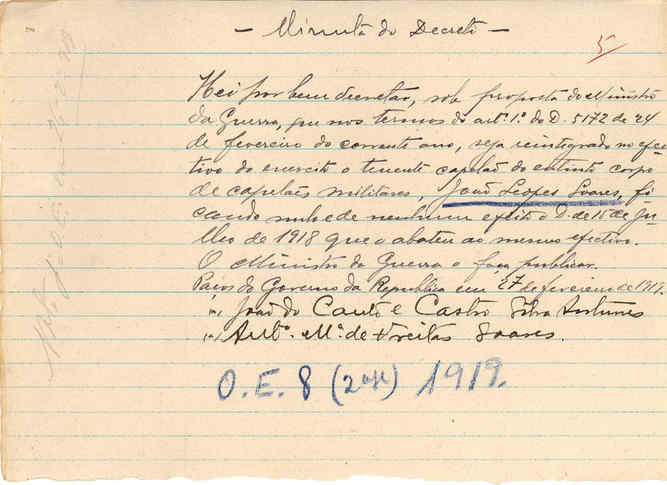 — Minuta do Decreto —
5
Hei por bem decretar, sob proposta do Ministro
da Guerra, que nos termos do artº. 1º. do D. 5172 de 24
de fevereiro do corrente ano, seja reintegrado no efec-
tivo do exercito o tenente capelão do extinto corpo
de capelães militares, João Lopes Soares, fi-
cando nulo e de nenhum efeito o D. de 15 de Ju-
lho de 1918 que o abateu ao mesmo efectivo.
O Ministro da Guerra o faça publicar.
Paços do Governo da Republica em 27 de fevereiro de 1919.
João do Canto e Castro Silva Antunes
Antº. Mª. de Freitas Soares.
O. E. 8 (2ª) 1919.